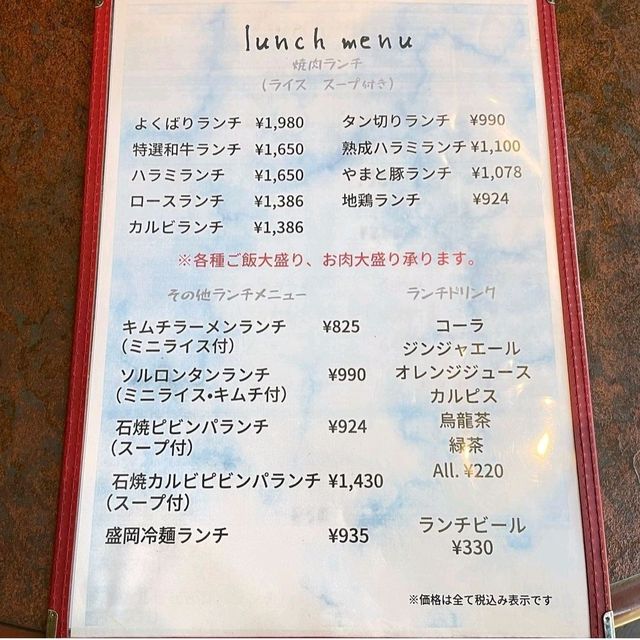 lunch menu
焼肉ランチ
(ライス スープ付き)
よくばりランチ ¥1,980
特選和牛ランチ ¥1,650
ハラミランチ ¥1,650
ロースランチ ¥1,386
カルビランチ ¥1,386
タン切りランチ ¥990
熟成ハラミランチ ¥1,100
やまと豚ランチ ¥1,078
地鶏ランチ ¥924
※各種ご飯大盛り、お肉大盛り承ります。
その他ランチメニュー
キムチラーメンランチ ¥825
(ミニライス付)
ソルロンタンランチ ¥990
(ミニライス・キムチ付)
石焼ピビンパランチ ¥924
(スープ付)
石焼カルビピビンパランチ ¥1,430
(スープ付)
盛岡冷麺ランチ ¥935
ランチドリンク
コーラ
ジンジャエール
オレンジジュース
カルピス
烏龍茶
緑茶
All. ¥220
ランチビール
¥330
※価格は全て税込み表示です